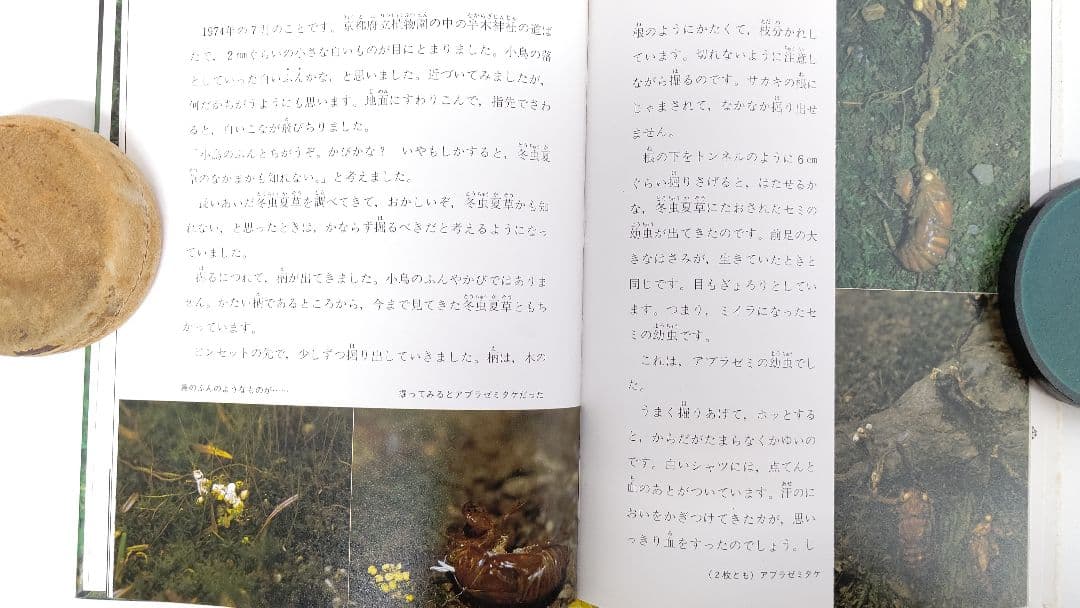 1974年の7月のことです。京都府立植物園の中の半木神社の道ば
たで、2㎜ぐらいの小さな白いものが目にとまりました。小鳥の落
としていった白いふんかな、と思いました。近づいてみましたが、
何だかちがうようにも思います。地面にすわりこんで、指先でさわ
ると、白いこなが飛びちりました。
「小鳥のふんとちがうぞ。かびかな？　いやもしかすると、冬虫夏
草のなかまかも知れない。」と考えました。
長いあいだ冬虫夏草を調べてきて、おかしいぞ、冬虫夏草かも知
れない、と思ったときは、かならず掘るべきだと考えるようになっ
ていました。
掘るにつれて、柄が出てきました。小鳥のふんやかびではありま
せん。かたい柄であるところから、今まで見てきた冬虫夏草ともち
がっています。
ピンセットの先で、少しずつ掘り出していきました。柄は、木の
鳥のふんのようなものが……
掘ってみるとアブラゼミタケだった
根のようにかたくて、枝分かれし
ています。切れないように注意し
ながら掘るのです。サカキの根に
じゃまされて、なかなか掘り出せ
ません。
根の下をトンネルのように6㎝
ぐらい掘りさげると、はたせるか
な、冬虫夏草にたおされたセミの
幼虫が出てきたのです。前足の大
きなはさみが、生きていたときと
同じです。目もぎょろりとしてい
ます。つまり、ミイラになったセ
ミの幼虫です。
これは、アブラゼミの幼虫でし
た。
うまく掘りあげて、ホッとする
と、からだがたまらなくかゆいの
です。白いシャツには、点てんと
血のあとがついています。汗のに
おいをかぎつけてきたカが、思い
っきり血をすったのでしょう。し
（2枚とも）アブラゼミタケ